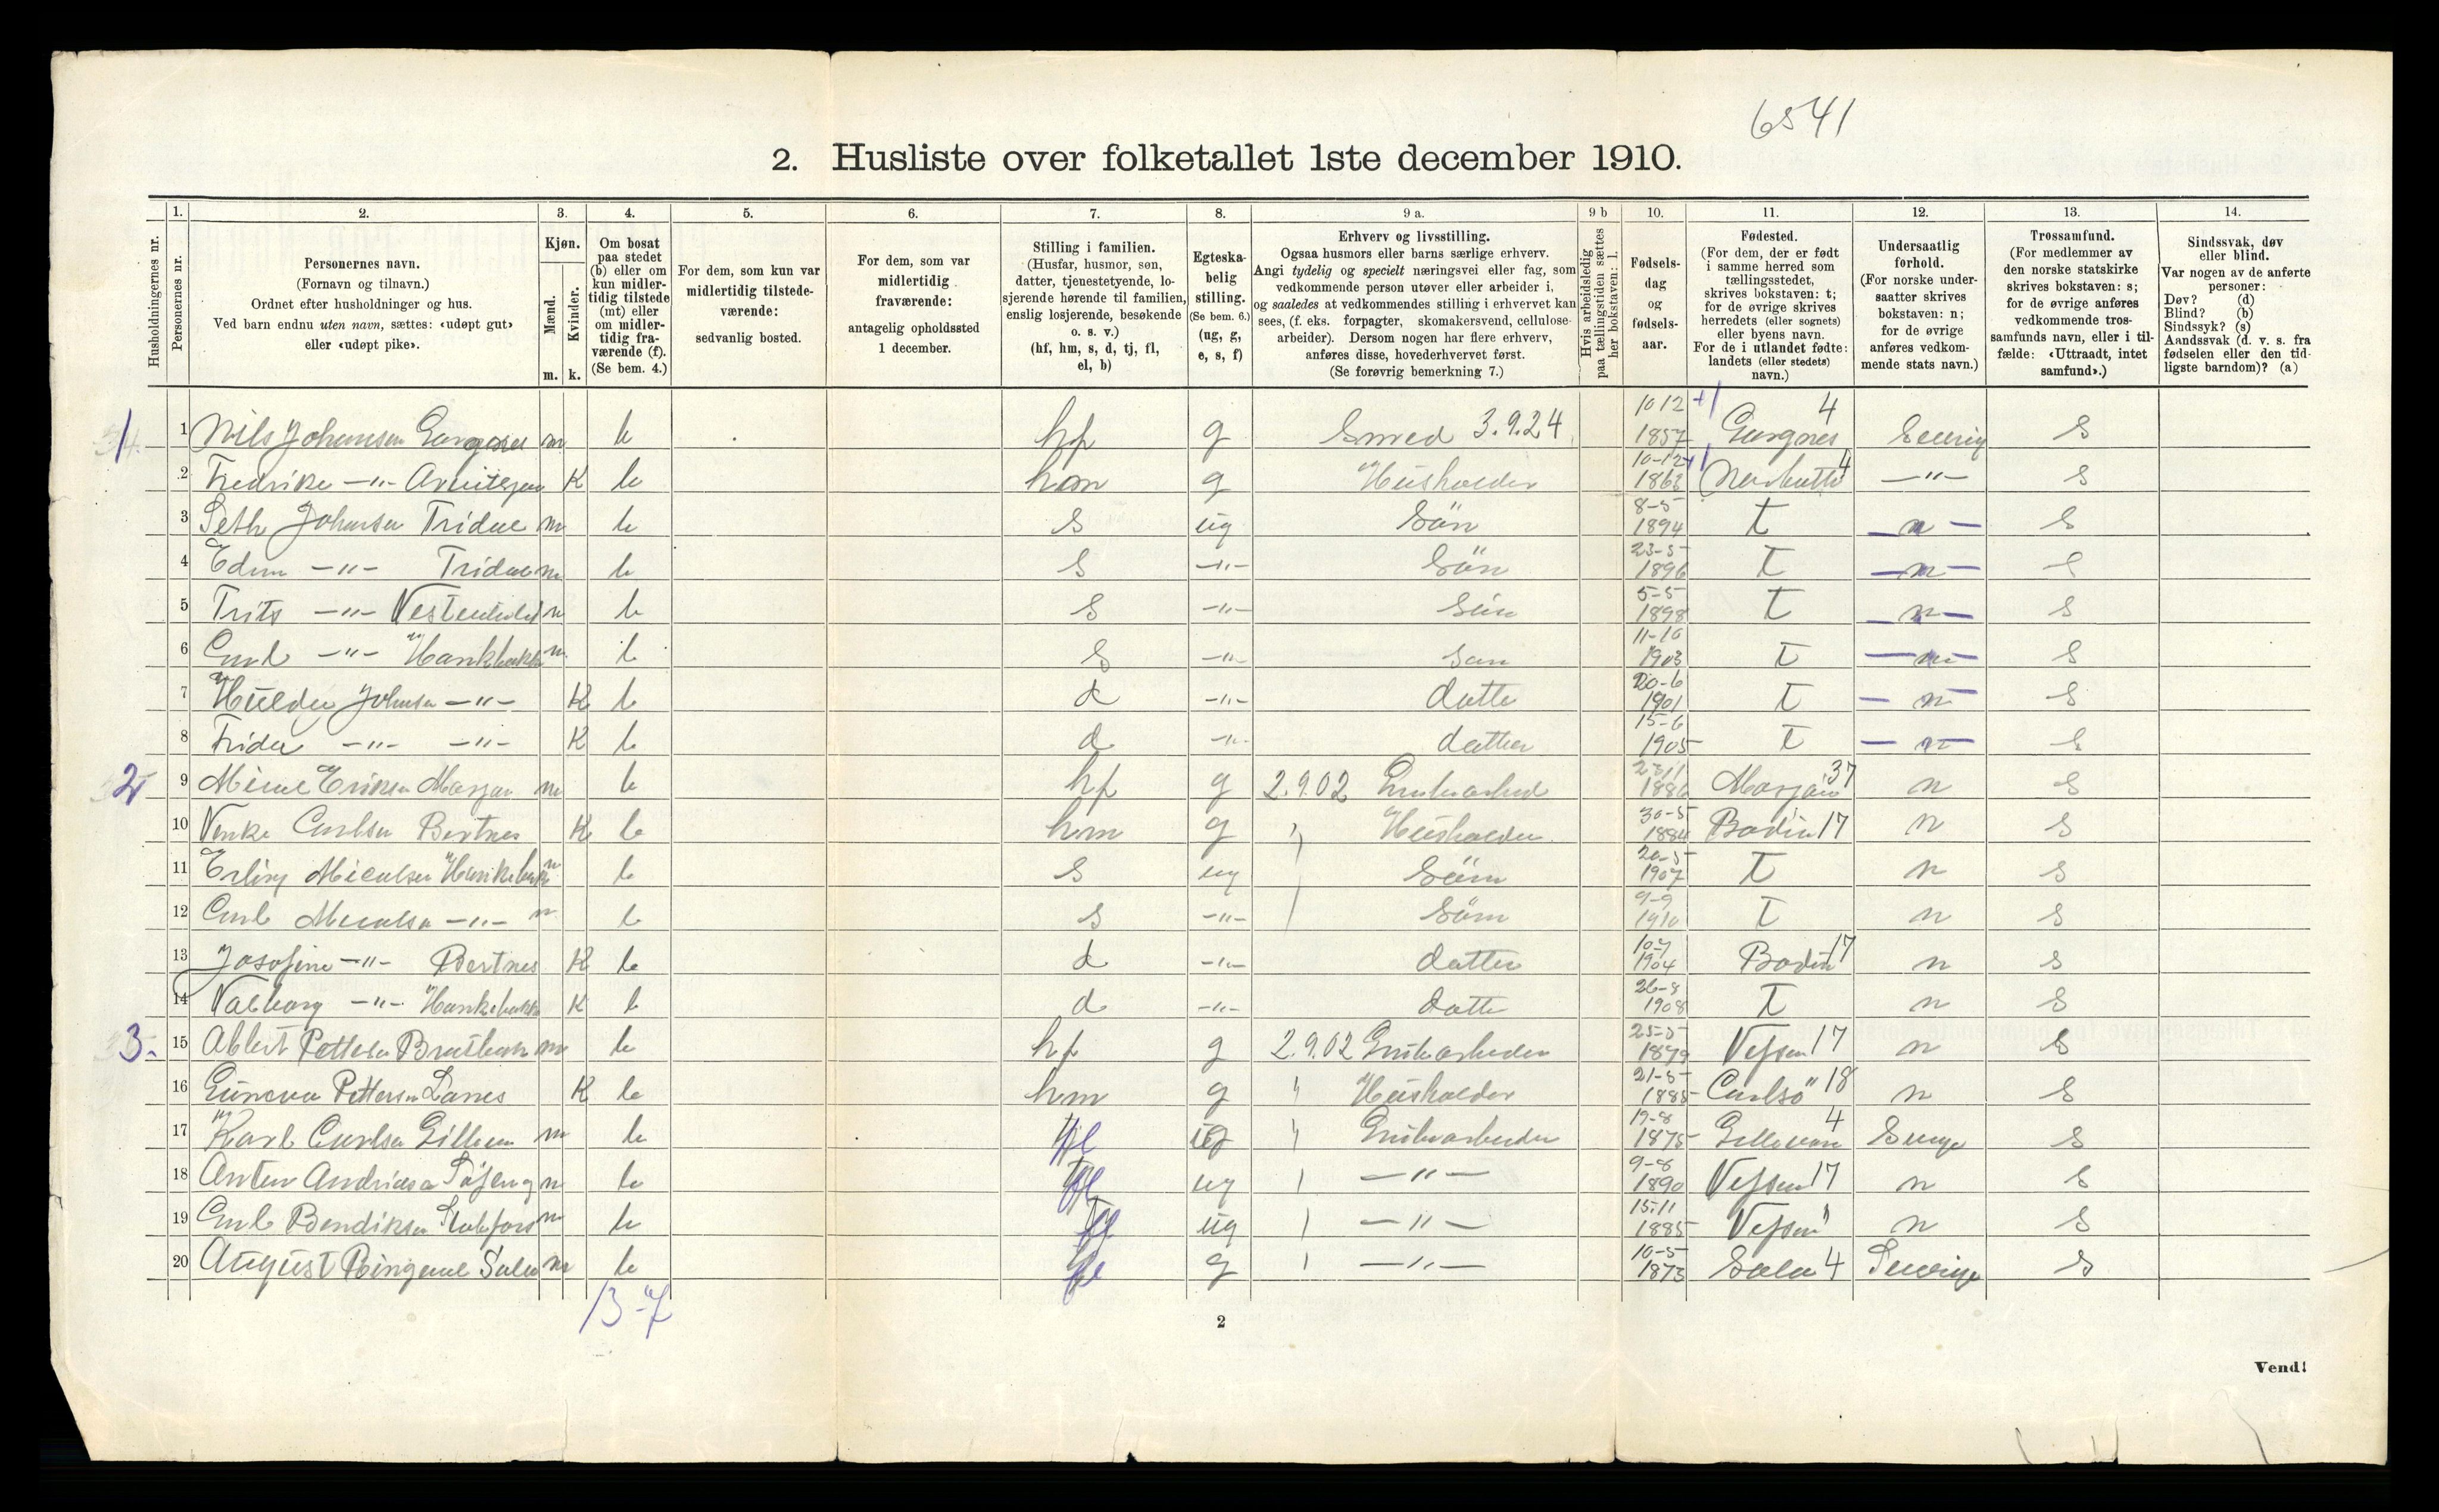 6541
2. Husliste over folketallet 1ste december 1910.
Husholdningernes nr.
1. Personernes nr.
2. Personernes navn.
(Fornavn og tilnavn.)
Ordnet efter husholdninger og hus.
Ved barn endnu uten navn, sættes: «udøpt gut»
eller «udøpt pike».
3. Kjøn.
Mænd. Kvinder.
m. k.
4. Om bosat
paa stedet
(b) eller om
kun midler-
tidig tilstede
(mt) eller
om midler-
tidig fra-
værende (f).
(Se bem. 4.)
5. For dem, som kun var
midlertidig tilstede-
værende:
sedvanlig bosted.
6. For dem, som var
midlertidig
fraværende:
antagelig opholdssted
1 december.
7. Stilling i familien.
(Husfar, husmor, søn,
datter, tjenestetyende, lo-
sjerende hørende til familien,
enslig losjerende, besøkende
o. s. v.)
(hf, hm, s, d, tj, fl,
el, b)
8. Egteska-
belig
stilling.
(Se bem. 6.)
(ug, g,
e, s, f)
9 a. Erhverv og livsstilling.
Ogsaa husmors eller barns særlige erhverv.
Angi tydelig og specielt næringsvei eller fag, som
vedkommende person utøver eller arbeider i,
og saaledes at vedkommendes stilling i erhvervet kan
sees, (f. eks. forpagter, skomakersvend, cellulose-
arbeider). Dersom nogen har flere erhverv,
anføres disse, hovederhvervet først.
(Se forøvrig bemerkning 7.)
9 b Hvis arbeidsledig
paa tællingstiden sættes
her bokstaven: l.
10. Fødsels-
dag
og
fødsels-
aar.
11. Fødested.
(For dem, der er født
i samme herred som
tællingsstedet,
skrives bokstaven: t;
for de øvrige skrives
herredets (eller sognets)
eller byens navn.
For de i utlandet fødte:
landets (eller stedets)
navn.)
12. Undersaatlig
forhold.
(For norske under-
saatter skrives
bokstaven: n;
for de øvrige
anføres vedkom-
mende stats navn.)
13. Trossamfund.
(For medlemmer av
den norske statskirke
skrives bokstaven: s;
for de øvrige anføres
vedkommende tros-
samfunds navn, eller i til-
fælde: «Uttraadt, intet
samfund».)
14. Sindssvak, døv
eller blind.
Var nogen av de anførte
personer:
Døv? (d)
Blind? (b)
Sindssyk? (s)
Aandssvak (d. v. s. fra
fødselen eller den tid-
ligste barndom)? (a)
1 1 Nils Johansen m b hf g Smed 3.9.24 10 12 1857 4 s
2 Fredrike -"- K b hm g Husholder 10-12 1863 4 -"- s
3 Seth Johansen m b s ug Sön 8-5 1894 t n s
4 -"- m b s -"- Sön 23-5 1896 t n s
5 Frits -"- m b s -"- Sön 5-5 1898 t n s
6 Carl -"- m b s -"- Sön 11-10 1903 t n s
7 Hulda Johnsen -"- K b d -"- datter 20-6 1901 t n s
8 Frida -"- -"- K b d -"- datter 15-6 1905 t n s
2 9 Eriksen m b hf g 2.9.02 37 n s
10 Carlsen Bertnes K b hm g " Husholder 30-5 1884 Bodin 17 n s
11 Erling m b s ug Sön 20-5 1907 t n s
12 Carl -"- m b s -"- Sön 9-9 1910 t n s
13 Josofine -"- Bertnes K b d -"- datter 10-7 1904 Bodin 17 n s
14 Valborg -"- K b d -"- datter 26-8 1908 t n s
3. 15 Petterse m b hf g 2.9.02 Grubearbeider 25-5 1879 Vefsen 17 n s
16 Pettersen K b hm g " Husholder 21-5 1885 Carlsö 18 n s
17 Karl Carlsen m b fl ug " Grubearbeider 19-8 1875 4 s
18 Anton m b fl ug -"- 9-8 1890 Vefsen 17 n s
19 Bendiksen m b fl ug -"- 15-11 1885 Vefsen " n s
20 August m b fl g -"- 10-5 1873 Sala 4 s
13-7
2
Vend!